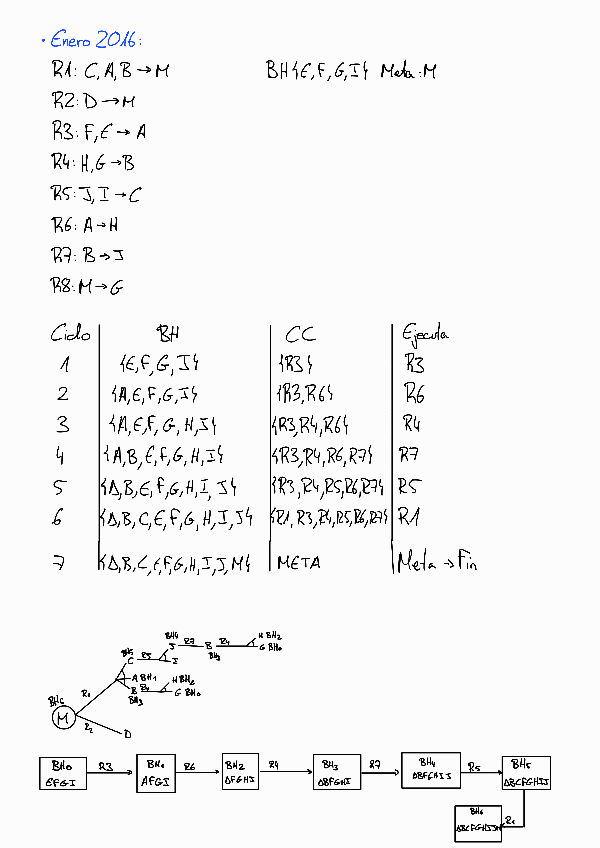 • Enero 2016:
R1: C, A, B → M BH{E, F, G, I} Meta: M
R2: D → M
R3: F, E → A
R4: H, G → B
R5: J, I → C
R6: A → H
R7: B → J
R8: M → G
Ciclo BH CC Ejecuta
1 {E, F, G, I} {R3} R3
2 {A, E, F, G, I} {R3, R6} R6
3 {A, E, F, G, H, I} {R3, R4, R6} R4
4 {A, B, E, F, G, H, I} {R3, R4, R6, R7} R7
5 {A, B, E, F, G, H, I, J} {R3, R4, R5, R6, R7} R5
6 {A, B, C, E, F, G, H, I, J} {R1, R3, R4, R5, R6, R7} R1
7 {A, B, C, E, F, G, H, I, J, M} META Meta → Fin
BH4 H BH2
BH5 J R7 B R4 G BH0
C R5 I BH3
A BH1 H BH2
BH6 R1 B R4 G BH0
M BH3
R2 D
BH0 R3 BH1 R6 BH2 R4 BH3 R7 BH4 R5 BH5
EFGI AFGI AFGHI ABFGHI ABFGHIJ ABCFGHIJ
BH6 R1
ABCFGHIJM